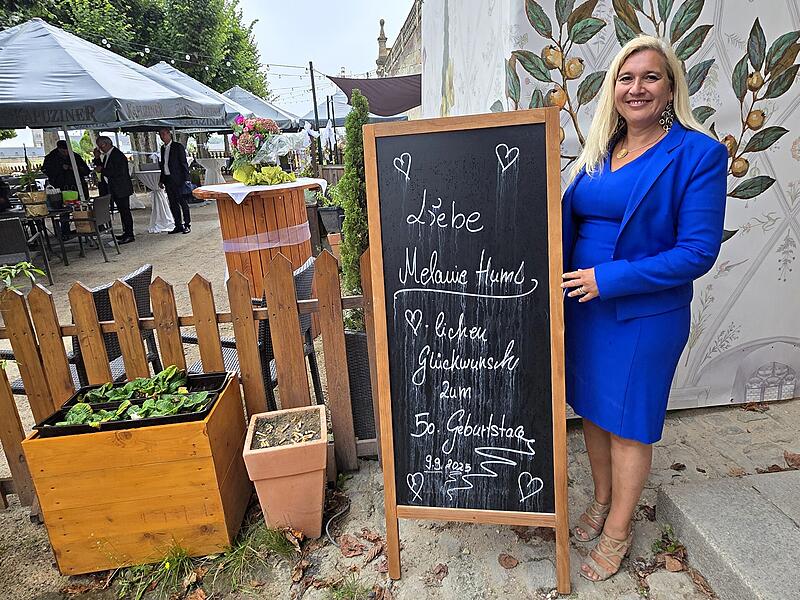 KAPUZINER
Liebe
Melanie Huml
♡-lichen
Glückwunsch
zum
50. Geburtstag
9.9.2025